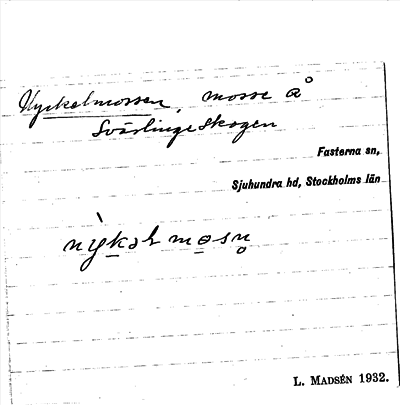 Nyckelmossen, mosse å
Svärlingeskogen
Fasterna sn,
Sjuhundra hd, Stockholms län
nỳkəlmosn̥
L. MADSÉN 1932.